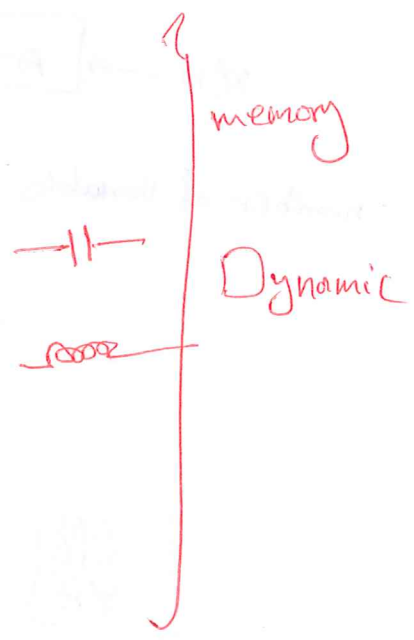 memory
Dynamic